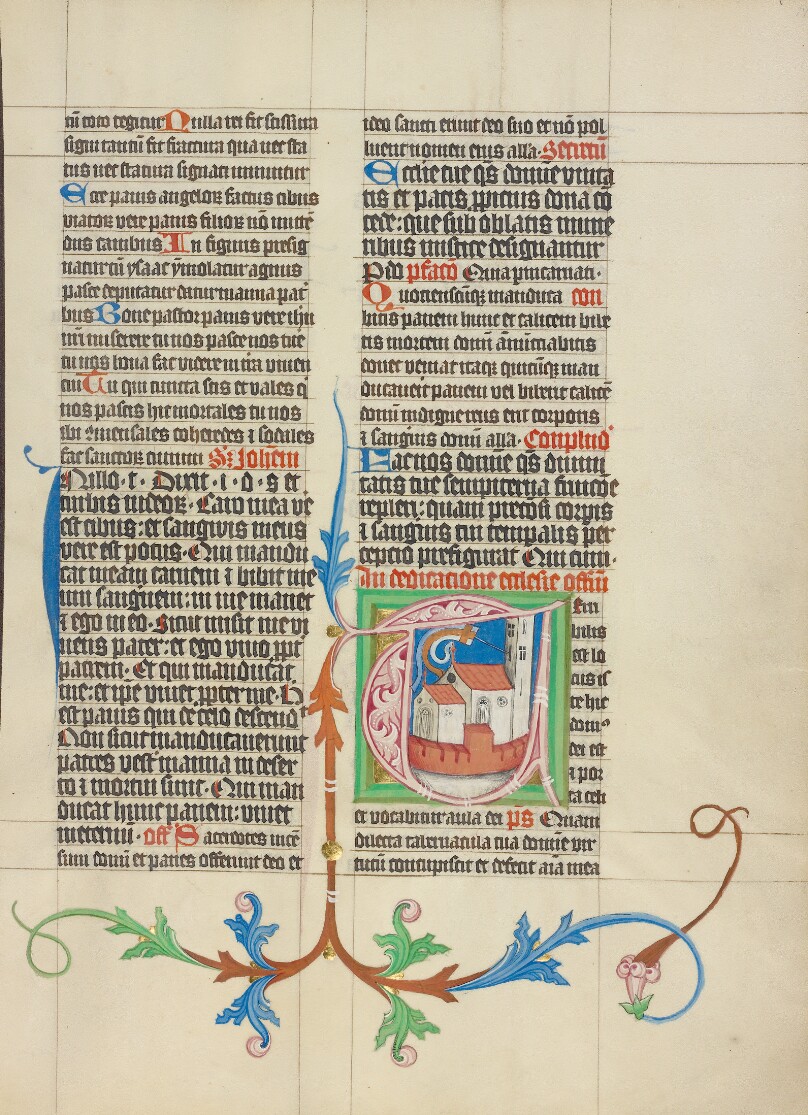 cū toto tegitur Nulla rei fit scissura
signi tantū fit fractura qua nec sta
tus nec statura signati minuitur
Ecce panis angeloꝝ factus cibus
viatoꝝ vere panis filioꝝ nō mittē
dus canibus In figuris presig
natur cū ysaac ymolatur agnus
pasce deputatur datur manna pat
bus Bone pastor panis vere ihū
nrī miserere tu nos pasce nos tue
tu nos bona fac videre in tra viuen
ciū Tu qui cuncta scis et vales q
nos pascis hic mortales tu nos
ibi 9mensales coheredes ⁊ sodales
fac sanctoꝝ ciuium S. Johem
In illo · t · Dixit · i · d · s et
turbis iudeoꝝ · Caro mea ve
est cibus : et sanguis meus
vere est potus · Qui mandu
cat meam carnem ⁊ bibit me
um sanguinem : in me manet
⁊ ego in eo · Sicut misit me vi
uens pater : et ego viuo ꝓpt
patrem · Et qui manducat
me : et ipē viuet ꝓpter me · H
est panis qui de celo descend
Non sicut manducauerunt
patres vestī manna in deser
to ⁊ mortui sunt · Qui man
ducat hunc panem : viuet
ineternū · off Sacerdotes incē
sum domī et panes offerunt deo et
ideo sancti erunt deo suo et nō pol
luent nomen eius alla · Secretū
Ecclie tue qs domine vnita
tis et pacis ꝓpicius dona cō
cede : que sub oblatis mune
ribus mistice designantur
P dn̄ pfacō Quia p incarnati ·
Quotienscūqꝫ manduca con
bitis panem hunc et calicem bibe
tis mortem domī annūciabitis
donec veniat itaqꝫ quicūqꝫ man
ducauerit panem vel biberit calicē
domī indigne reus erit corporis
⁊ sanguīs domī alla · Conplend
Fac nos domīe qs diuini
tatis tue sempiterna fruicōe
repleri : quam preciosi corpis
⁊ sanguīs tui temporalis per
cepcio prefigurat Qui cum ·
In dedicatione ecclesie officiū
Terri
bilis
est lo
cus is
te hic
dom9
dei est
⁊ por
ta celi
et vocabitur aula dei ps Quam
dilecta tabernacula tua domīe vir
tutū concupiscit et defecit aīa mea